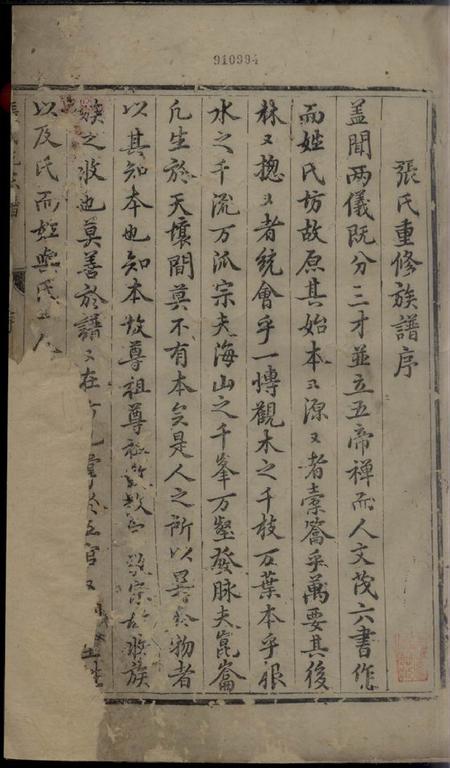 910994
張氏重修族譜序
盖聞两儀既分三才並立五帝禅而人文茂六書作
而姓氏坊故原其始本〻源〻者橐籥乎萬要其後
林〻揔〻者統會乎一慱觀木之千枝万葉本乎根
水之千流万派宗夫海山之千峯万壑發脉夫崑崙
凡生於天壤間莫不有本矣是人之所以異於物者
以其知本也知本故尊祖尊祖故敬宗敬宗故收族
族之收也莫善於譜〻在
以及氏而姓